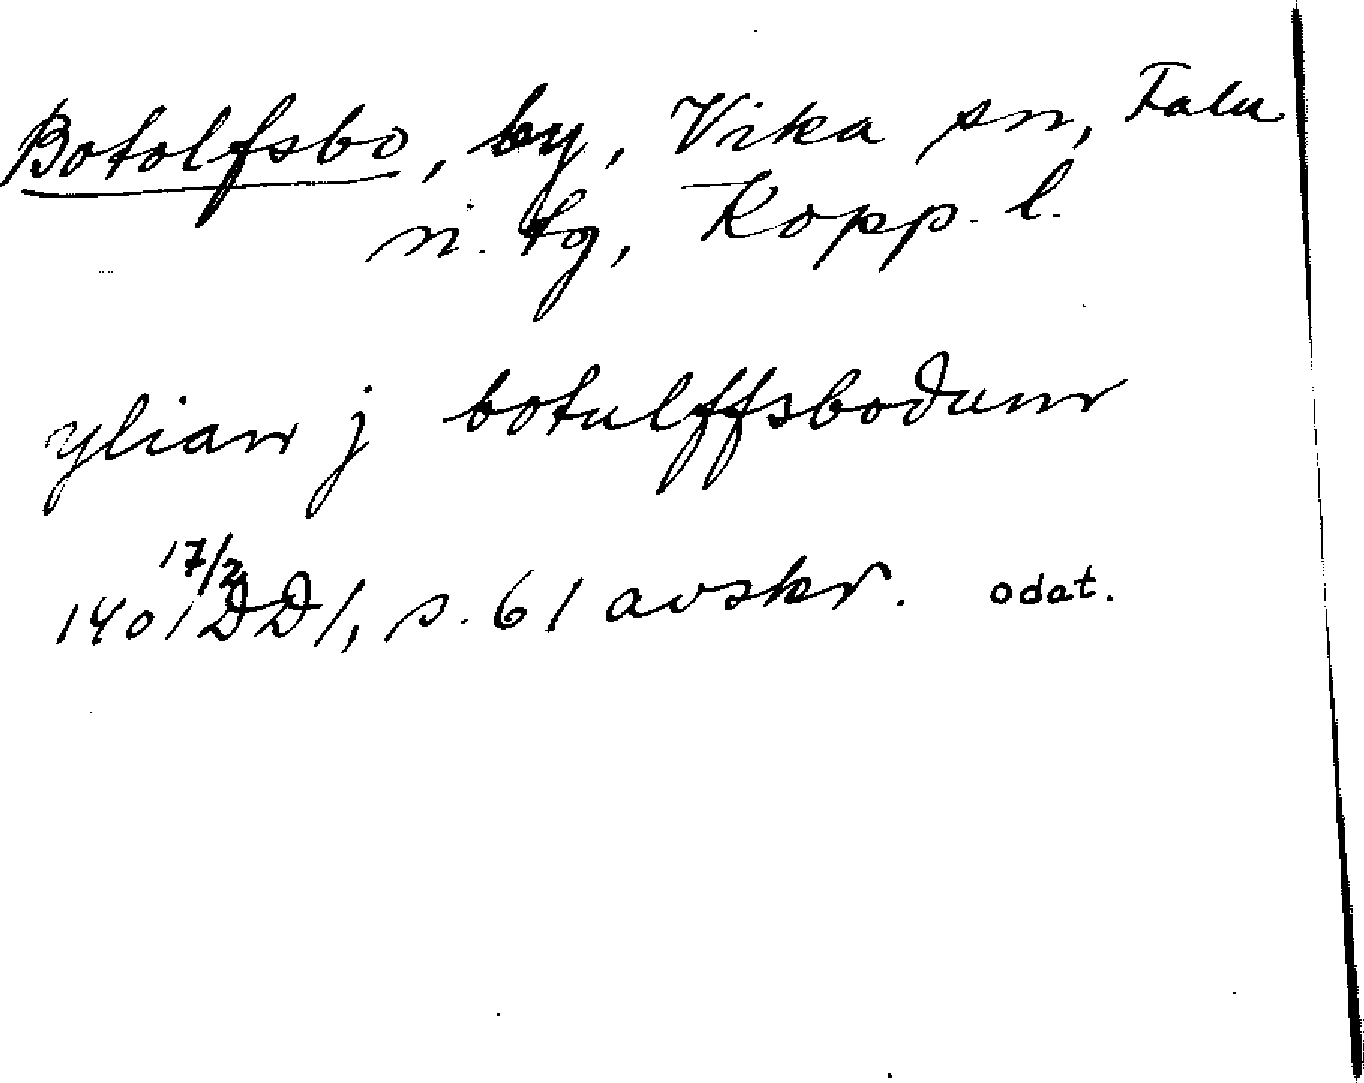 Botolfsbo, by, Vika sn, Falu
n. tg, Kopp. l.
ylian j botulffsbodum
17/2
1401 DD 1, s. 61 avskr. odat.